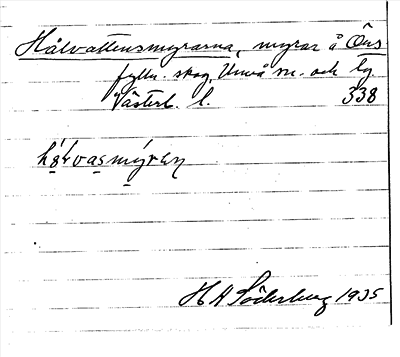 Hålvattensmyrarna, myrar å Öns
fjälln. skog, Umeå sn. och lg.
Västerb. l. 338
hålvasmýran
H A Söderberg 1935